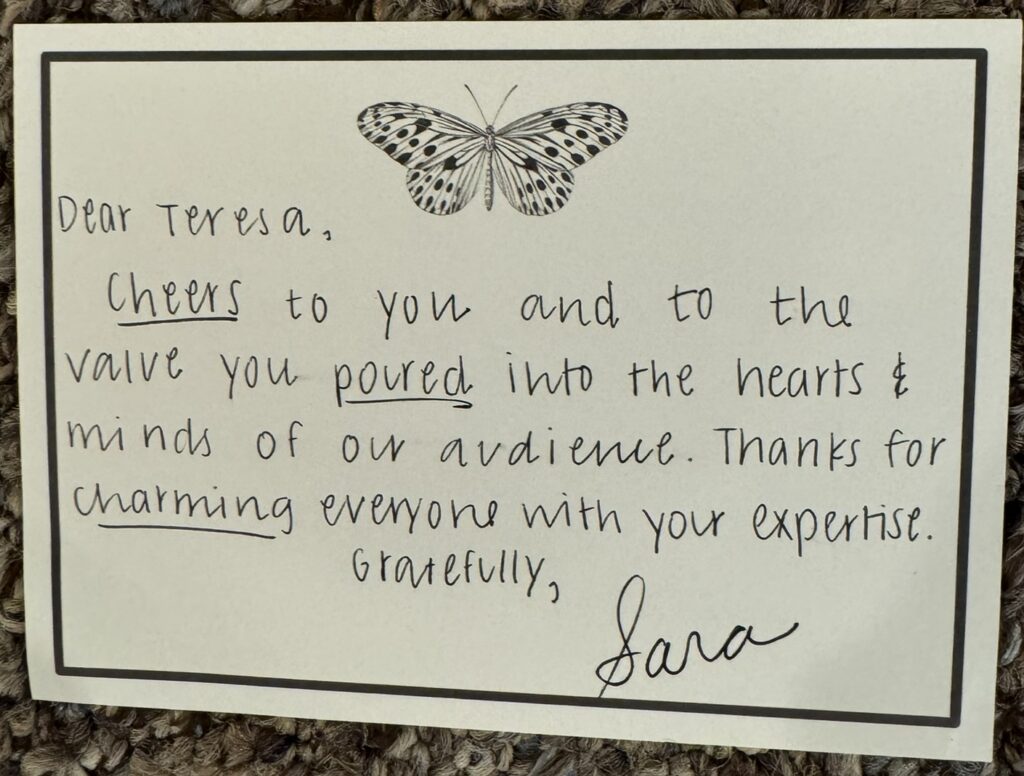 Dear Teresa,
Cheers to you and to the
value you poured into the hearts &
minds of our audience. Thanks for
charming everyone with your expertise.
Gratefully,
Sara